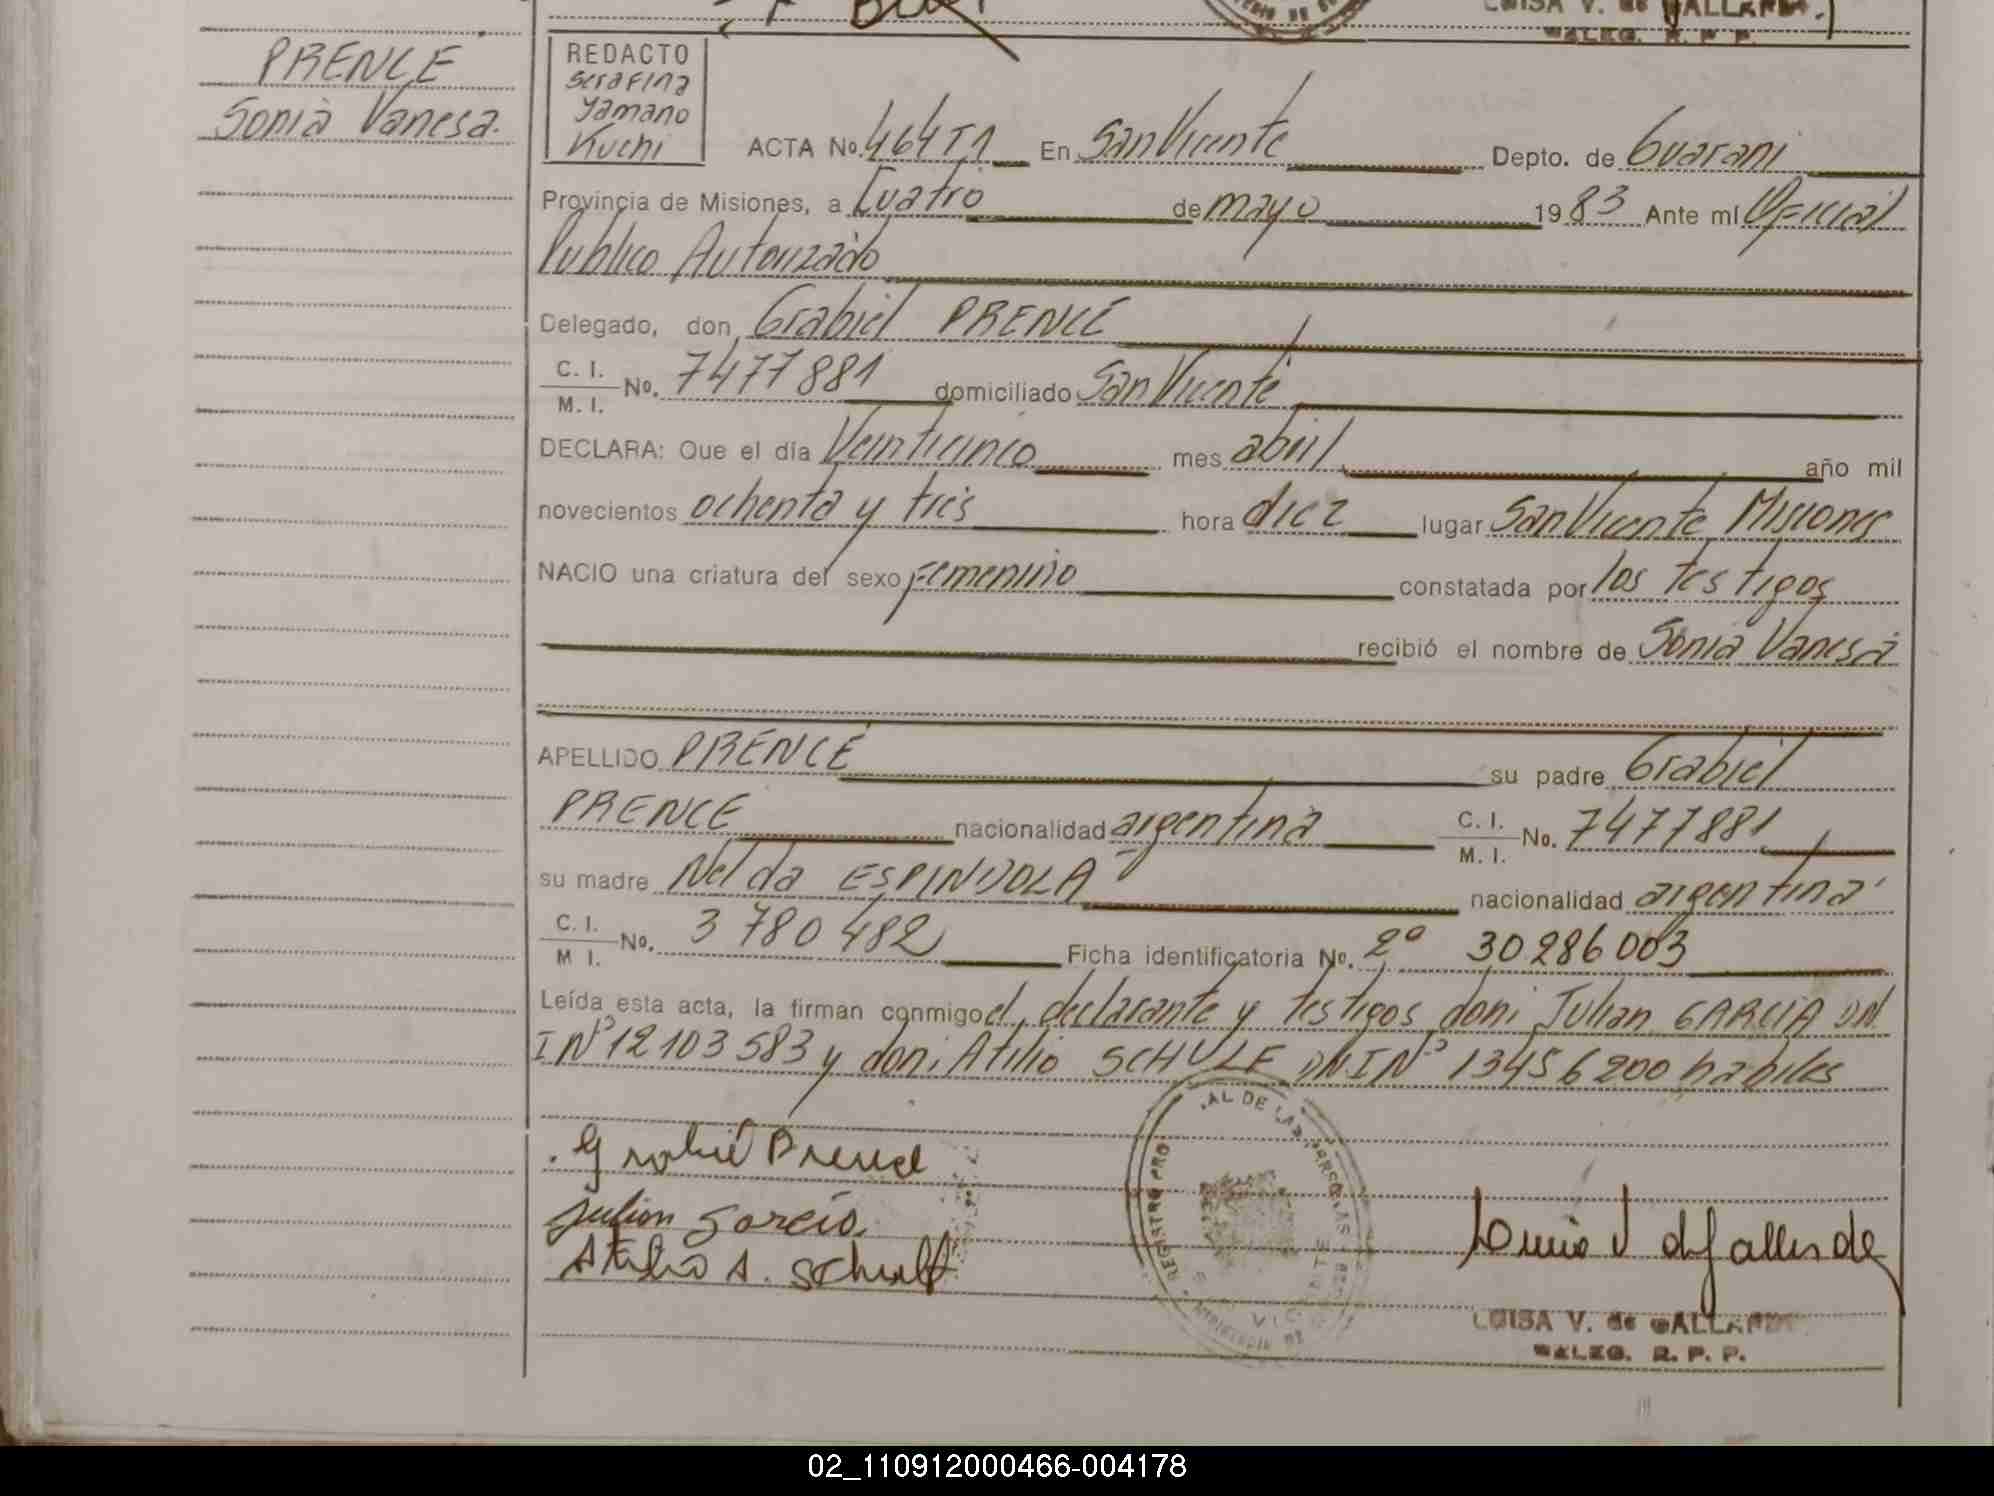 LUISA V. de GALLARDO
DALEG. R. P. P.
PRENCE
Sonia Vanesa.
REDACTO
Serafina
Yamano
Kuchi
ACTA No. 464 T1 En San Vicente Depto. de Guarani
Provincia de Misiones, a Cuatro de mayo 1983 Ante mí Oficial
Publico Autorizado
Delegado, don Grabiel PRENCE
C. I.
M. I. No. 7477881 domiciliado San Vicente
DECLARA: Que el día Veinticinco mes abril año mil
novecientos ochenta y tres hora diez lugar San Vicente Misiones
NACIO una criatura del sexo femenino constatada por los testigos
recibió el nombre de Sonia Vanesa
APELLIDO PRENCE su padre Grabiel
PRENCE nacionalidad argentina C. I.
M. I. No. 7477881
su madre Nelda ESPINDOLA nacionalidad argentina
C. I.
M. I. No. 3780482 Ficha identificatoria No. 2º 30286003
Leída esta acta, la firman conmigo el declarante y testigos don: Julian GARCIA DN
I Nº 12103583 y don: Atilio SCHULF DNI Nº 13456200 habiles
Grabiel Prence
Julian Garcia
Atilio A. Schulf
REGISTRO PRO AL DE LAS PERSONAS
VICENTE
Luisa V de Gallardo
LUISA V. de GALLARDO
DALEG. R. P. P.
02_110912000466-004178